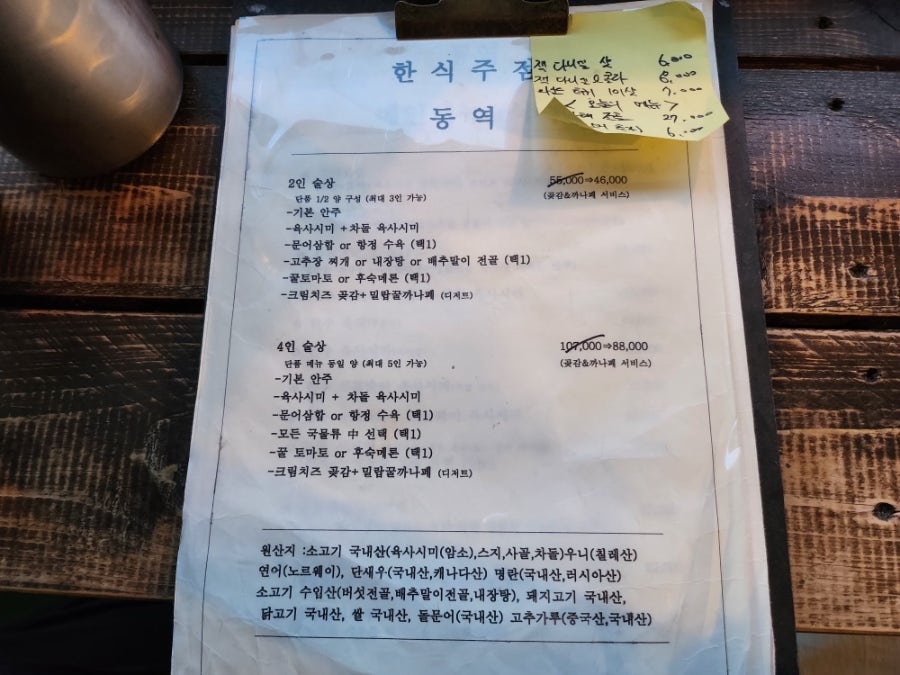 한식주점
동역
잭 다니엘 샷 6,000
잭 다니엘 오콜라 8,000
7,000
< 오늘의 메뉴 >
27,000
6,000
2인 술상 55,000⇒46,000
단품 1/2 양 구성 (최대 3인 가능) (곶감&까나페 서비스)
-기본 안주
-육사시미 + 차돌 육사시미
-문어삼합 or 항정 수육 (택1)
-고추장 찌개 or 내장탕 or 배추말이 전골 (택1)
-꿀토마토 or 후숙메론 (택1)
-크림치즈 곶감+ 밀람꿀까나페 (디저트)
4인 술상 107,000⇒88,000
단품 메뉴 동일 양 (최대 5인 가능) (곶감&까나페 서비스)
-기본 안주
-육사시미 + 차돌 육사시미
-문어삼합 or 항정 수육 (택1)
-모든 국물류 中 선택 (택1)
-꿀 토마토 or 후숙메론 (택1)
-크림치즈 곶감+ 밀람꿀까나페 (디저트)
원산지 :소고기 국내산(육사시미(암소),스지,사골,차돌)우니(칠레산)
연어(노르웨이), 단새우(국내산,캐나다산) 명란(국내산,러시아산)
소고기 수입산(버섯전골,배추말이전골,내장탕), 돼지고기 국내산,
닭고기 국내산, 쌀 국내산, 돌문어(국내산) 고추가루(중국산,국내산)